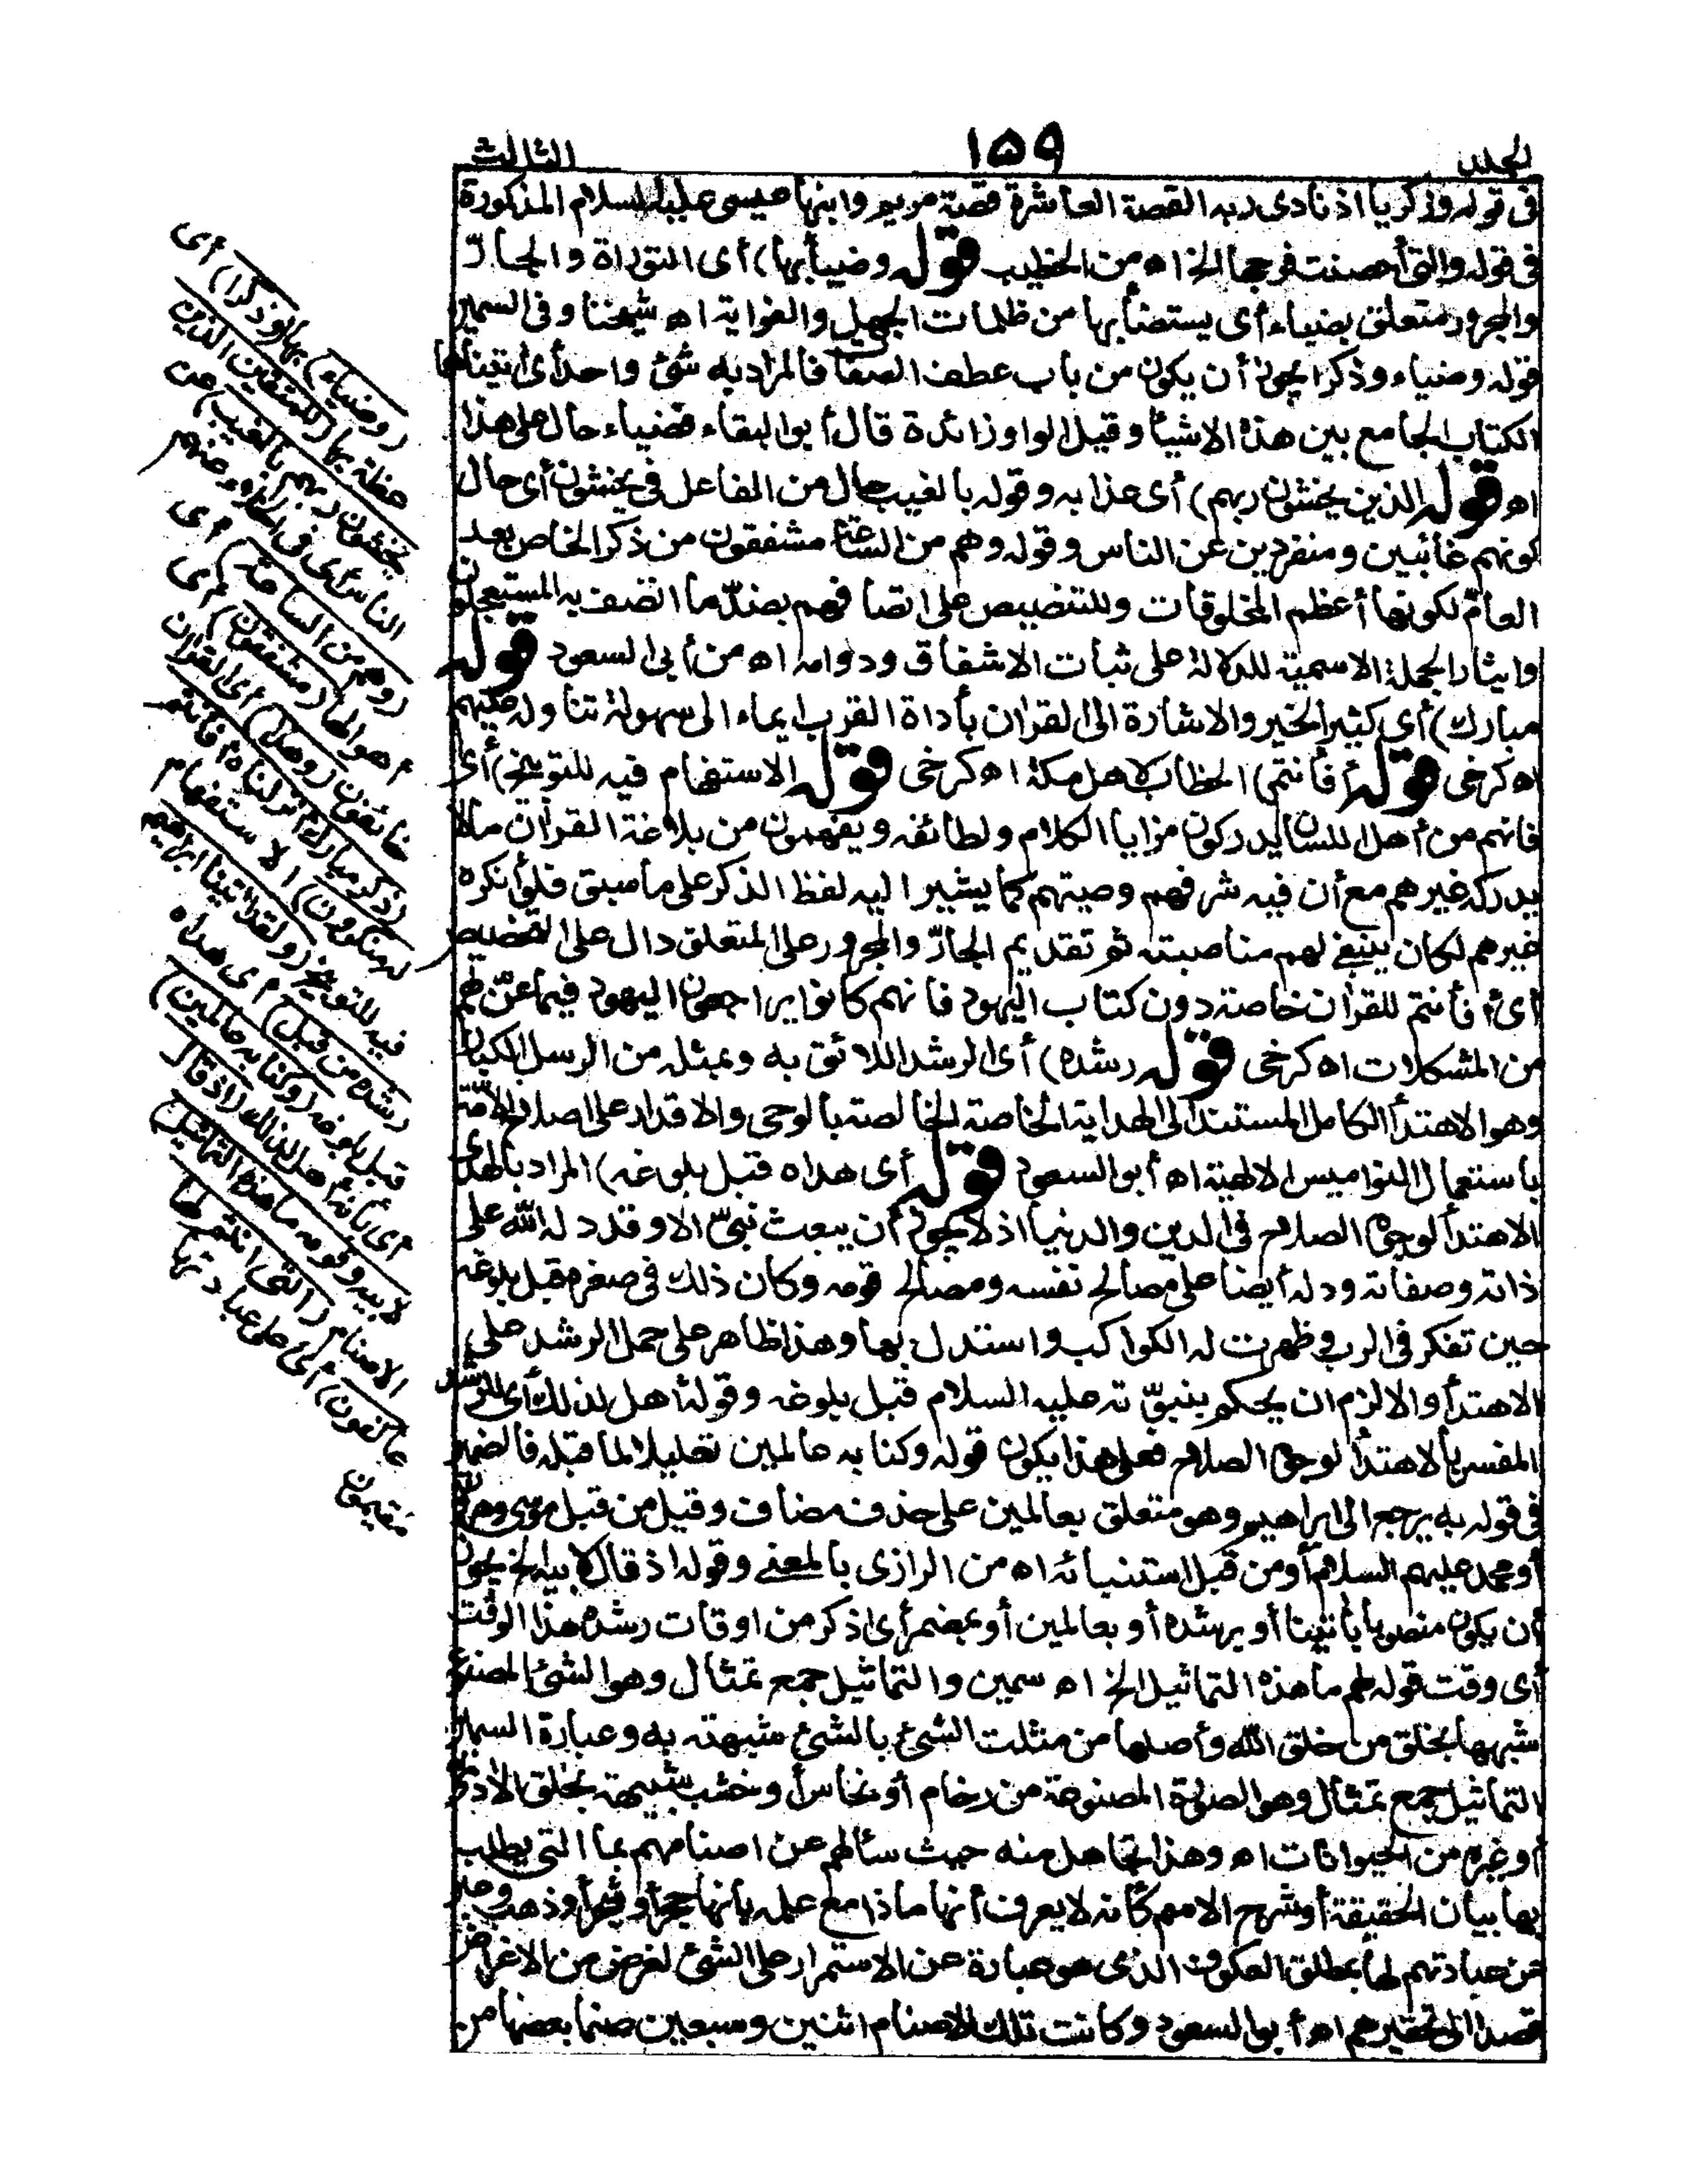 الجلد
١٥٩
الثالث
فى قوله وزكريا اذ نادى ربه القصة العاشرة قصة مريم وابنها عيسى عليهما السلام المذكورة
فى قوله والتى أحصنت فرجها الخ اه من الخطيب قوله وضياء بها) أى التوراة والجارّ
والمجرور متعلق بضياء أى يستضاء بها من ظلمات الجهل والغواية اه شيخنا وفى السمين
قوله وضياء وذكرا يجوز أن يكون من باب عطف الصفات فالمراد به شئ واحد أى آتيناهما
الكتاب الجامع بين هذه الاشياء وقيل الواو زائدة قال أبو البقاء فضياء حال على هذا
اه قوله الذين يخشون ربهم) أى عذابه وقوله بالغيب حال من الفاعل فى يخشون أى حال
كونهم غائبين ومنفردين عن الناس وقوله وهم من الساعة مشفقون من ذكر الخاص بعد
العامّ لكونها أعظم المخلوقات وللتنصيص على اتصافهم بضدّ ما اتصف به المستعجلون
وايثار الجملة الاسمية للدلالة على ثبات الاشفاق ودوامه اه من أبى السعود قوله
مبارك) أى كثير الخير والاشارة الى القرآن بأداة القرب ايماء الى سهولة تناوله عليهم
اه كرخى قوله أفأنتم) الخطاب لاهل مكة اه كرخى قوله الاستفهام فيه للتوبيخ) أى
فانهم من أهل اللسان يدركون مزايا الكلام ولطائفه ويفهمون من بلاغة القرآن مالا
يدركه غيرهم مع أن فيه شرفهم وصيتهم كما يشير اليه لفظ الذكر على ما سبق فلو أنكره
غيرهم لكان ينبغى لهم مناصبته ثم تقديم الجارّ والمجرور على المتعلق دال على التخصيص
أى أفأنتم للقرآن خاصة دون كتاب اليهود فانهم كانوا يراجعون اليهود فيما عنّ لهم
من المشكلات اه كرخى قوله رشده) أى الرشد اللائق به وبمثله من الرسل الكبار
وهو الاهتداء الكامل المستند الى الهداية الخاصة الخالصة بالوحى والاقدار على اصلاح الأمّة
باستعمال النواميس الالهية اه أبو السعود قوله أى هداه قبل بلوغه) المراد بالهدى
الاهتداء لوجوه الصلاح فى الدين والدنيا اذ لا يجوز أن يبعث نبىّ الا وقد دله الله على
ذاته وصفاته ودله أيضا على مصالح نفسه ومصالح قومه وكان ذلك فى صغره قبل بلوغه
حين تفكر فى الرب وظهرت له الكواكب واستدل بها وهذا ظاهر على حمل الرشد على
الاهتداء والا لزم ان يحكم بنبوّته عليه السلام قبل بلوغه وقوله أهل لذلك أى للرشد
المفسر بالاهتداء لوجوه الصلاح فعلى هذا يكون قوله وكنا به عالمين تعليلا لما قبله فالضمير
فى قوله به يرجع الى ابراهيم وهو متعلق بعالمين على حذف مضاف وقيل من قبل موسى وهرون
أو محمد عليهم السلام أو من قبل استنبائه اه من الرازى بالمعنى وقوله اذ قال لابيه الخ يجوز
أن يكون منصوبا بآتينا أو برشده أو بعالمين أو بمضمر أى اذكر من اوقات رشده هذا الوقت
أى وقت قوله لهم ما هذه التماثيل الخ اه سمين والتماثيل جمع تمثال وهو الشئ المصنوع
شبيها بخلق من خلق الله وأصلها من مثلت الشئ بالشئ شبهته به وعبارة السمين
التماثيل جمع تمثال وهو الصورة المصنوعة من رخام أو نحاس أو خشب شبيهة بخلق الآدمى
أو غيره من الحيوانات اه وهذا تجاهل منه حيث سألهم عن اصنامهم بما التى يطلب
بها بيان الحقيقة أو شرح الاسم كأنه لا يعرف أنها ماذا مع علمه بأنها حجر أو شجر أو ذهب وعبر
عن عبادتهم لها بمطلق العكوف الذى هو عبارة عن الاستمرار على الشئ لغرض من الاغراض
قصدا الى تحقيرهم اه أبو السعود وكانت تلك الاصنام اثنين وسبعين صنما بعضها من
(وضياء) بها (وذكرا) أى
عظة بها (للمتقين الذين
يخشون ربهم بالغيب) عن
الناس أى فى الخلاء عنهم
(وهم من الساعة) أى
أهوالها (مشفقون) أى
خائفون (وهذا) أى القرآن
(ذكر مبارك أنزلناه أفأنتم
له منكرون) الاستفهام
فيه للتوبيخ (ولقد آتينا ابراهيم
رشده من قبل) أى هداه
قبل بلوغه (وكنا به عالمين)
أى بأنه أهل لذلك (اذ قال
لابيه وقومه ما هذه التماثيل)
الاصنام (التى أنتم لها
عاكفون) أى على عبادتها
مقيمون